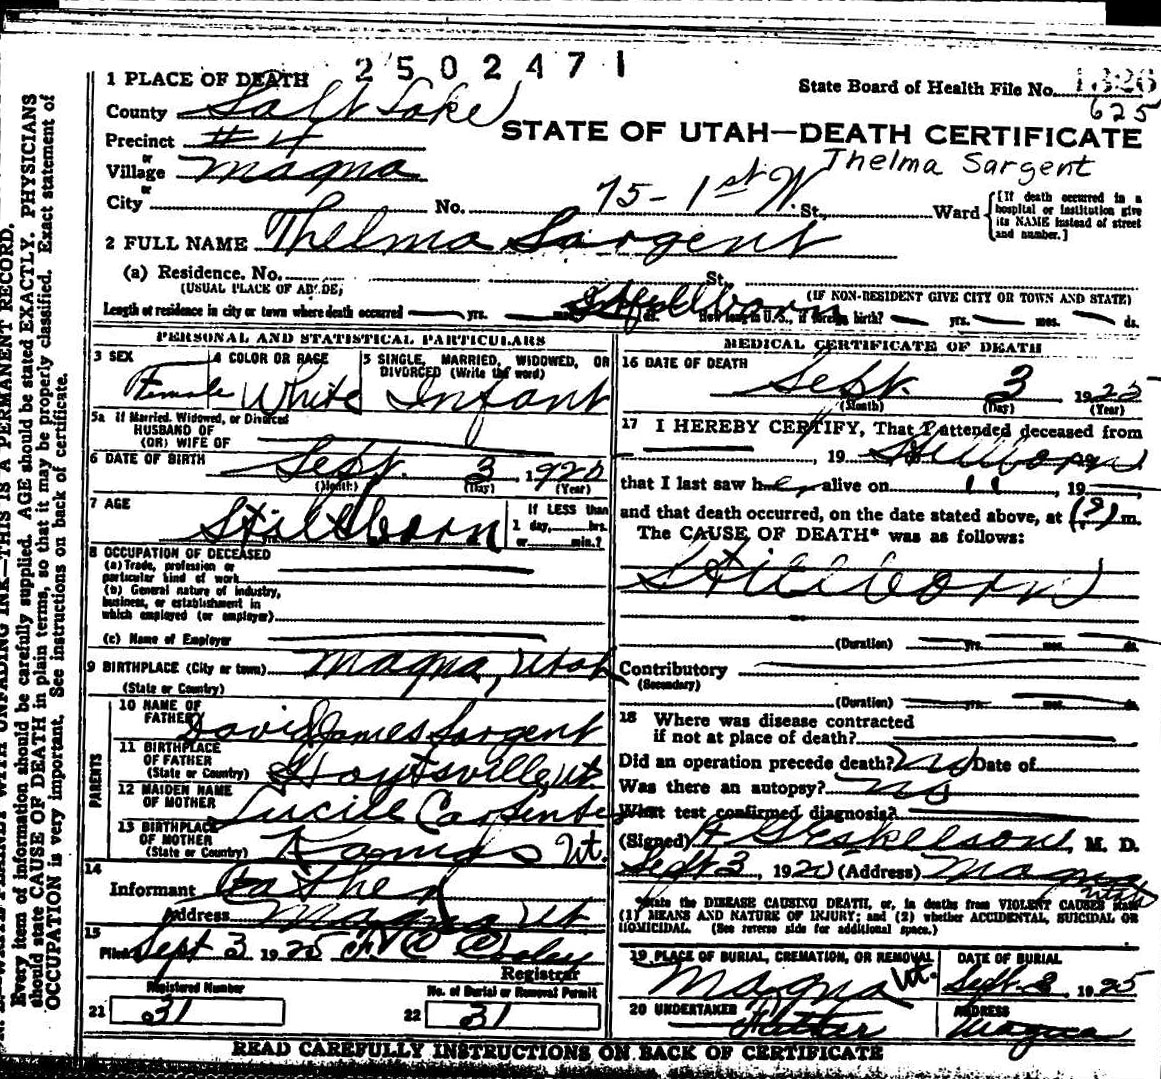 2502471
1 PLACE OF DEATH
State Board of Health File No. 1326
625
County Salt Lake
STATE OF UTAH—DEATH CERTIFICATE
Precinct #4
Thelma Sargent
or
Village Magna
or
City No. 75-1st W. St., Ward
[If death occurred in a hospital or institution give its NAME instead of street and number.]
2 FULL NAME Thelma Sargent
(a) Residence. No. St.
(USUAL PLACE OF ABODE) (IF NON-RESIDENT GIVE CITY OR TOWN AND STATE)
Stillborn
Length of residence in city or town where death occurred yrs. mos. ds. How long in U.S., if foreign birth? yrs. mos. ds.
PERSONAL AND STATISTICAL PARTICULARS
3 SEX Female
4 COLOR OR RACE White
5 SINGLE, MARRIED, WIDOWED, OR DIVORCED (Write the word) Infant
5a If Married, Widowed, or Divorced
HUSBAND OF
(OR) WIFE OF
6 DATE OF BIRTH Sept. 3, 1925
(Month) (Day) (Year)
7 AGE Stillborn
If LESS than
1 day, hrs.
or min.?
8 OCCUPATION OF DECEASED
(a) Trade, profession or
particular kind of work
(b) General nature of industry,
business, or establishment in
which employed (or employer)
(c) Name of Employer
9 BIRTHPLACE (City or town) Magna, Utah
(State or Country)
PARENTS
10 NAME OF FATHER David James Sargent
11 BIRTHPLACE OF FATHER Hoytsville, Ut.
(State or Country)
12 MAIDEN NAME OF MOTHER Lucile Carpenter
13 BIRTHPLACE OF MOTHER Kamas Ut.
(State or Country)
14
Informant Father
Address Magna Ut
15
Filed Sept 3 1925
Registrar
Registered Number
21 31
No. of Burial or Removal Permit
22 31
MEDICAL CERTIFICATE OF DEATH
16 DATE OF DEATH
Sept. 3 1925
(Month) (Day) (Year)
17 I HEREBY CERTIFY, That I attended deceased from
, 19 Stillborn 19
that I last saw her alive on " , 19
and that death occurred, on the date stated above, at (?) m.
The CAUSE OF DEATH* was as follows:
Stillborn
(Duration) yrs. mos. ds.
Contributory
(Secondary)
(Duration) yrs. mos. ds.
18 Where was disease contracted
if not at place of death?
Did an operation precede death? No Date of
Was there an autopsy? No
What test confirmed diagnosis?
(Signed) Eskelson, M. D.
Sept 3, 1925 (Address) Magna Utah
*State the DISEASE CAUSING DEATH, or, in deaths from VIOLENT CAUSES state
(1) MEANS AND NATURE OF INJURY; and (2) whether ACCIDENTAL, SUICIDAL OR
HOMICIDAL. (See reverse side for additional space.)
19 PLACE OF BURIAL, CREMATION, OR REMOVAL
Magna Ut.
DATE OF BURIAL
Sept. 3, 1925
20 UNDERTAKER Father
ADDRESS
Magna
READ CAREFULLY INSTRUCTIONS ON BACK OF CERTIFICATE
WRITE PLAINLY WITH UNFADING INK—THIS IS A PERMANENT RECORD.
Every item of information should be carefully supplied. AGE should be stated EXACTLY. PHYSICIANS
should state CAUSE OF DEATH in plain terms, so that it may be properly classified. Exact statement of
OCCUPATION is very important. See instructions on back of certificate.